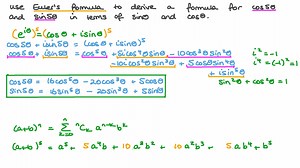 use Euler's formula to derive a formula for cos5θ
and sin5θ in terms of sinθ and cosθ.
(e^iθ)^5 = (cosθ + isinθ)^5
cos5θ + isin5θ = (cosθ + isinθ)^5
i² = -1
cos5θ + isin5θ = cos⁵θ + 5icos⁴θsinθ - 10cos³θsin²θ
i⁴ = (-1)² = 1
- 10icos²θsin³θ + 5cosθsin⁴θ
+ isin⁵θ
sin²θ + cos²θ = 1
cos5θ = 16cos⁵θ - 20cos³θ + 5cosθ
sin5θ = 16sin⁵θ - 20sin³θ + 5sinθ
(a+b)ⁿ = Σ ⁿCₖ aⁿ⁻ᵏ bᵏ
(a+b)⁵ = a⁵ + 5a⁴b + 10a³b² + 10a²b³ + 5ab⁴ + b⁵